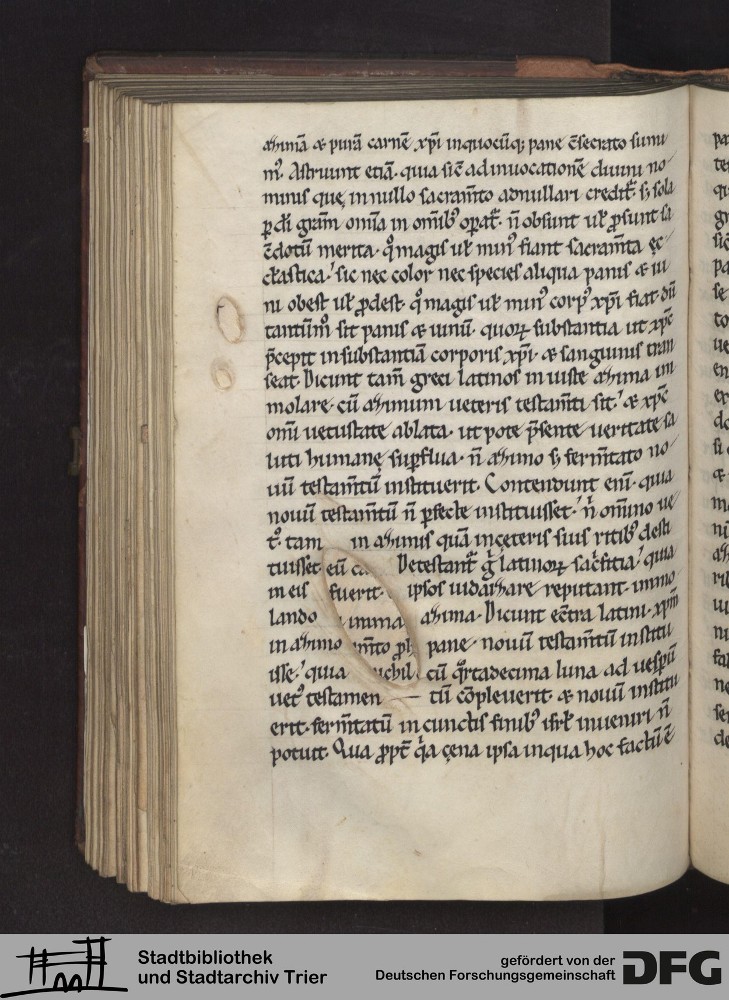 ahimā & purā carnē xp̄i inquocūq; pane c̄secrato sumi
m᷒. Astruunt etiā. quia sic̄ ad inuocationē diuini no
minis que, in nullo sacram̄to adnullari credit̄. s; sola
p di grām omīa in om̄ib᷒ opat̄. n̄ obsunt ul̄ psunt sa
c̄dotū merita. q᷒ magis ul̄ min᷒ fiant sacram̄ta ęc
cl̄astica. sic nec color nec species aliqua panis & ui
ni obest ul̄ pdest. q᷒ magis ul̄ min᷒ corp᷒ xp̄i fiat. dū
tantūm᷒ sit panis & uinū. quoꝝ substantia ut xp̄c
p̄cepit in substantiā corporis xp̄i. & sanguinis tran
seat. Dicunt tam̄ greci latinos in iuste ahima im
molare. cū ahimum ueteris testam̄ti sit. & xp̄c
omī uetustate ablata. ut pote p̄sente ueritate sa
luti humanę supflua. n̄ ahimo s; ferm̄tato no
uū testam̄tū instituerit. Contendunt enī. quia
nouū testam̄tū n̄ pfecte instituisset. n̄ om̄ino ue
t᷒. tam in ahimis quā in ceteris suis ritib᷒ desti
tuisset eū ca Detestant̄ g̊ latinoꝝ sac̄ficia. quia
in eis fuerit. ipsos iudaihare reputant. immo
lando ahima. Dicunt ec̄tra latini. xp̄m
in ahimo pane nouū testam̄tū institu
isse. quia cū q̄rtadecima luna ad uespū
uet᷒ testamen tū cōpleuerit. & nouū institu
erit. ferm̄tatū in cunctis finib᷒ isrl̄ inueniri n̄
potuit. Qua ppt̄ q̄a cena ipsa inqua hoc factū ē
Stadtbibliothek
und Stadtarchiv Trier
gefördert von der
Deutschen Forschungsgemeinschaft
DFG